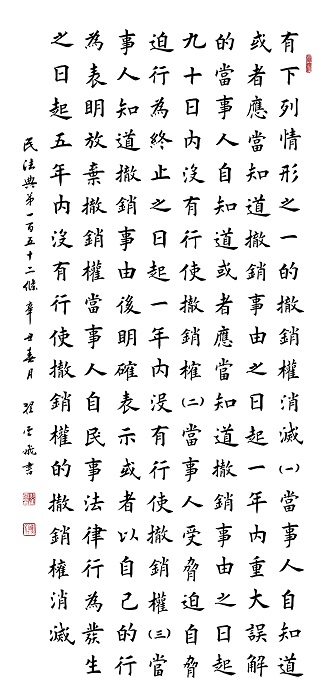 有下列情形之一的撤銷權消滅(一)當事人自知道
或者應當知道撤銷事由之日起一年內重大誤解
的當事人自知道或者應當知道撤銷事由之日起
九十日內沒有行使撤銷權(二)當事人受脅迫自脅
迫行為終止之日起一年內沒有行使撤銷權(三)當
事人知道撤銷事由後明確表示或者以自己的行
為表明放棄撤銷權當事人自民事法律行為發生
之日起五年內沒有行使撤銷權的撤銷權消滅
民法典第一百五十二條 辛丑春月 書